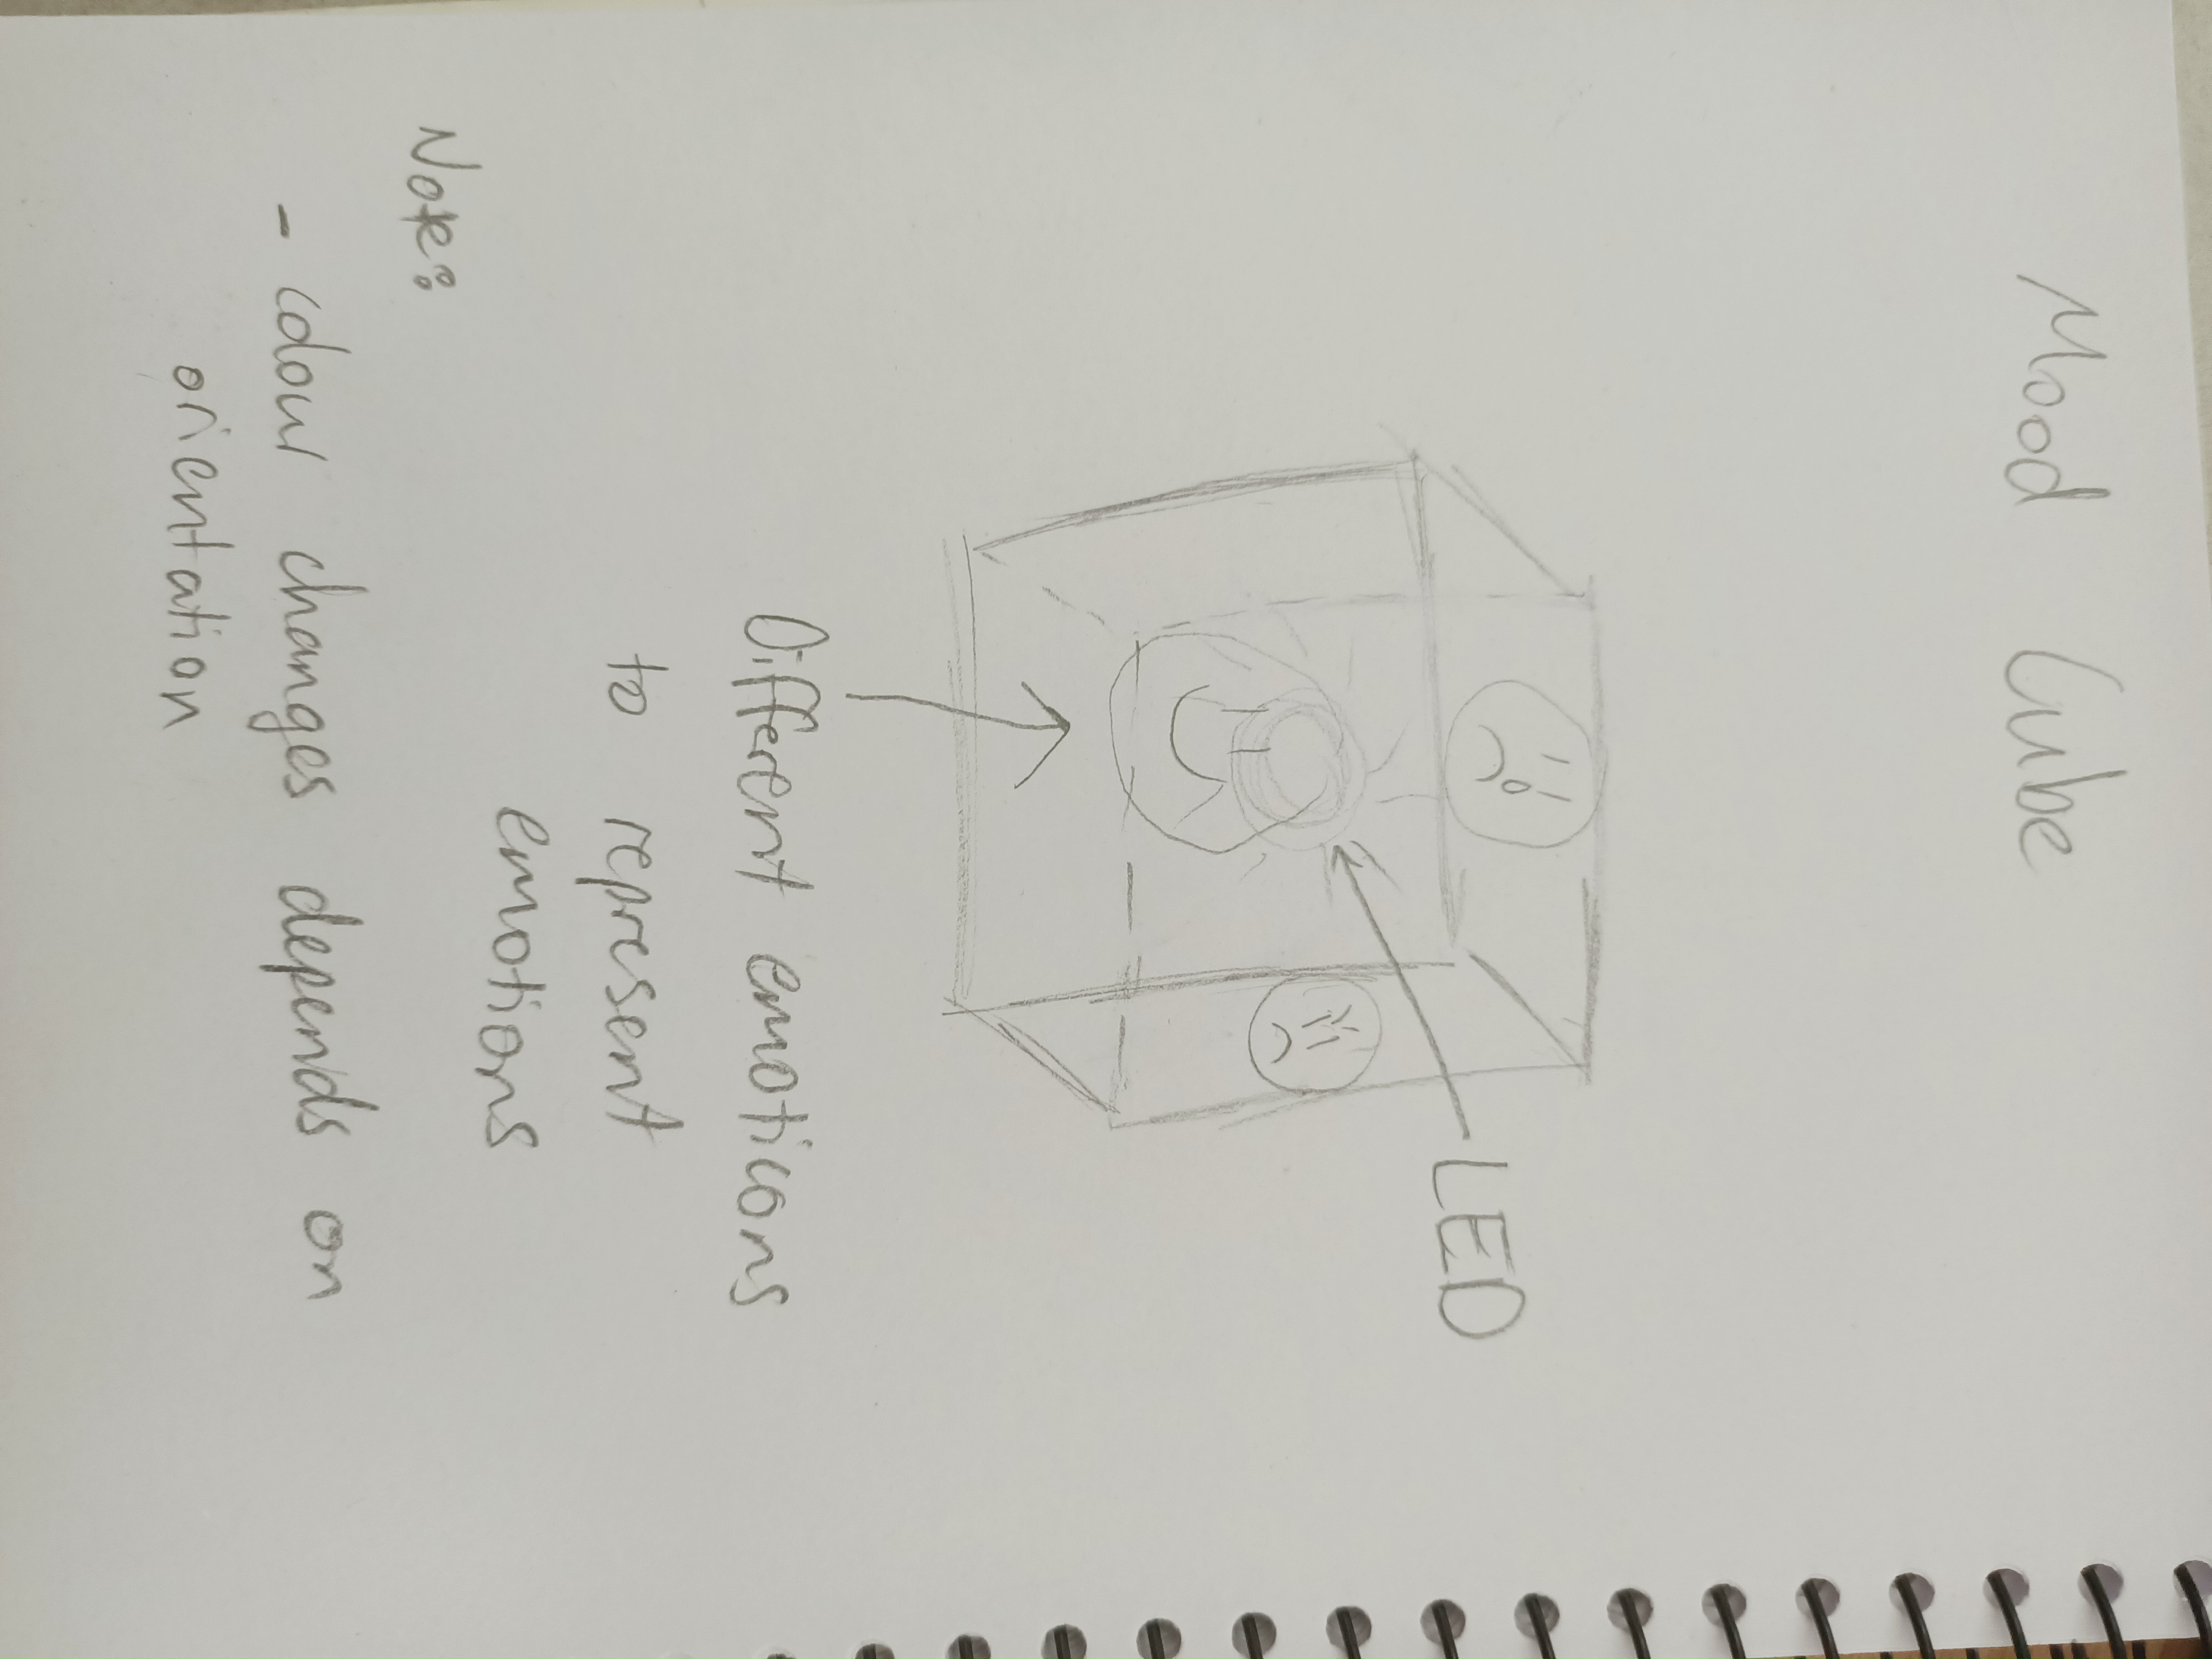 Mood Cube
LED
Different emoticons
to represent
emotions
Note:
- colour changes depends on
orientation